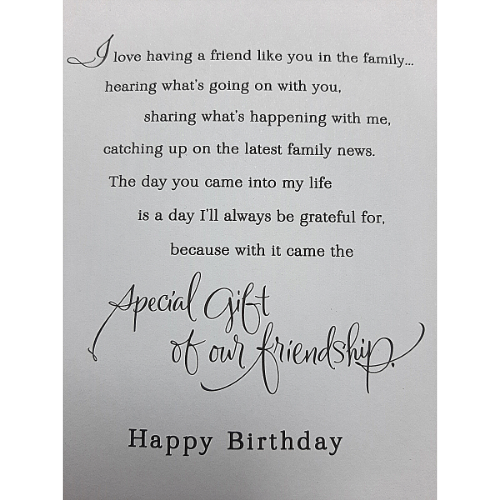 I love having a friend like you in the family...
hearing what's going on with you,
sharing what's happening with me,
catching up on the latest family news.
The day you came into my life
is a day I'll always be grateful for,
because with it came the
special Gift
of our friendship.
Happy Birthday